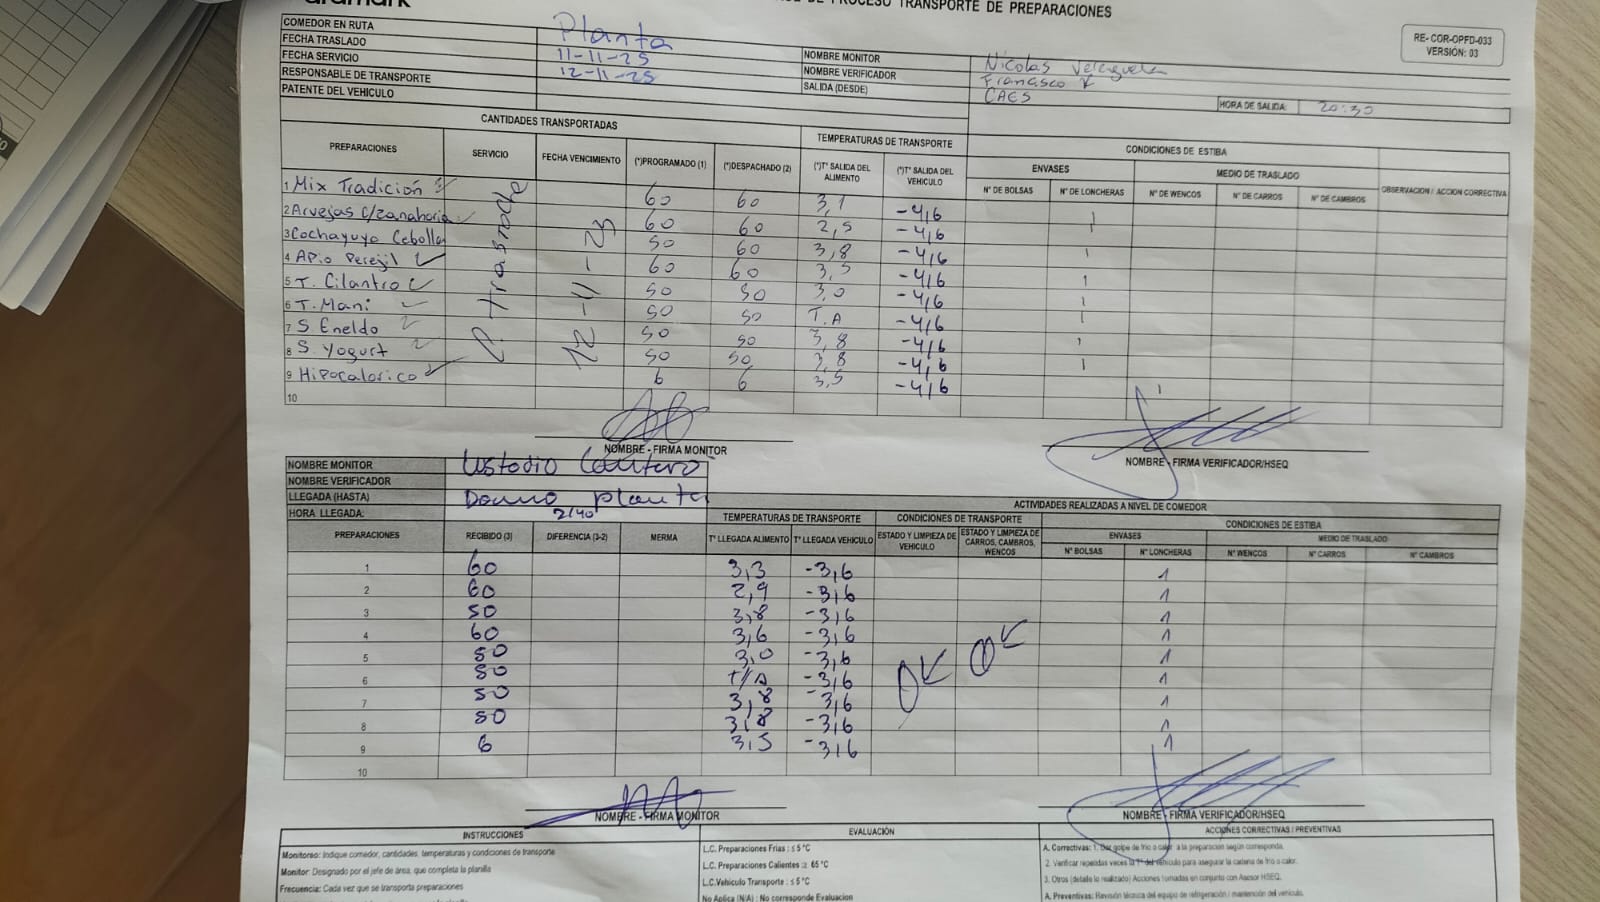 aramark
DE PROCESO TRANSPORTE DE PREPARACIONES
RE- COR-OPFD-033
VERSIÓN: 03
COMEDOR EN RUTA Planta
FECHA TRASLADO 11-11-25 NOMBRE MONITOR Nicolas
FECHA SERVICIO 12-11-25 NOMBRE VERIFICADOR Francisco
RESPONSABLE DE TRANSPORTE SALIDA (DESDE) CAES HORA DE SALIDA: 20:30
PATENTE DEL VEHICULO
CANTIDADES TRANSPORTADAS TEMPERATURAS DE TRANSPORTE CONDICIONES DE ESTIBA
ENVASES MEDIO DE TRASLADO
PREPARACIONES SERVICIO FECHA VENCIMIENTO (*)PROGRAMADO (1) (*)DESPACHADO (2) (*)T° SALIDA DEL ALIMENTO (*)T° SALIDA DEL VEHICULO N° DE BOLSAS N° DE LONCHERAS N° DE WENCOS N° DE CARROS N° DE CAMBROS OBSERVACION / ACCION CORRECTIVA
trasnoche
1 Mix Tradición 60 60 3,1 -4,6
2 Arvejas c/zanahoria 60 60 2,5 -4,6 1
3 Cochayuyo Cebolla 50 60 3,8 -4,6 1
4 Apio Perejil 60 60 3,5 -4,6 1
5 T. Cilantro 50 50 3,0 -4,6 1
6 T. Mani 50 50 T.A -4,6 1
7 S Eneldo 50 50 3,8 -4,6 1
8 S. Yogurt 50 50 3,8 -4,6 1
9 Hipocalorico 6 6 3,5 -4,6 1
10
NOMBRE - FIRMA MONITOR NOMBRE - FIRMA VERIFICADOR/HSEQ
NOMBRE MONITOR Custodio
NOMBRE VERIFICADOR
LLEGADA (HASTA) planta
HORA LLEGADA: 2140
ACTIVIDADES REALIZADAS A NIVEL DE COMEDOR
TEMPERATURAS DE TRANSPORTE CONDICIONES DE TRANSPORTE CONDICIONES DE ESTIBA
ENVASES MEDIO DE TRASLADO
PREPARACIONES RECIBIDO (3) DIFERENCIA (3-2) MERMA T° LLEGADA ALIMENTO T° LLEGADA VEHICULO ESTADO Y LIMPIEZA DE VEHICULO ESTADO Y LIMPIEZA DE CARROS, CAMBROS, WENCOS N° BOLSAS N° LONCHERAS N° WENCOS N° CARROS N° CAMBROS
1 60 3,3 -3,6 1
2 60 2,9 -3,6 1
3 50 3,8 -3,6 1
4 60 3,6 -3,6 1
5 50 3,0 -3,6 OK OK 1
6 50 T/A -3,6 1
7 50 3,8 -3,6 1
8 50 3,8 -3,6 1
9 6 3,5 -3,6 1
10
NOMBRE - FIRMA MONITOR NOMBRE - FIRMA VERIFICADOR/HSEQ
INSTRUCCIONES EVALUACIÓN ACCIONES CORRECTIVAS / PREVENTIVAS
Monitoreo: Indique comedor, cantidades, temperaturas y condiciones de transporte
Monitor: Designado por el jefe de área, que completa la planilla
Frecuencia: Cada vez que se transporta preparaciones
L.C. Preparaciones Frias : ≤ 5 °C
L.C. Preparaciones Calientes :≥ 65 °C
L.C.Vehiculo Transporte : ≤ 5 °C
No Aplica (N/A) : No corresponde Evaluacion
A. Correctivas: 1. Dar golpe de frio o calor a la preparación según corresponda.
2. Verificar repetidas veces la T° del vehículo para asegurar la cadena de frio o calor.
3. Otros (detalle lo realizado) Acciones tomadas en conjunto con Asesor HSEQ.
A. Preventivas: Revisión técnica del equipo de refrigeración / mantención del vehículo.